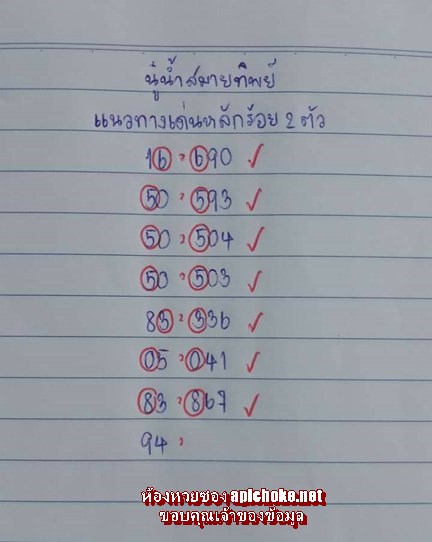 นู๋น้ำสมายทิพย์
แนวทางเด่นหลักร้อย 2 ตัว
16 : 690 ✓
50 : 593 ✓
50 : 504 ✓
50 : 503 ✓
83 : 336 ✓
05 : 041 ✓
83 : 867 ✓
94 :
ห้องหวยซอง apichoke.net
ขอบคุณเจ้าของข้อมูล